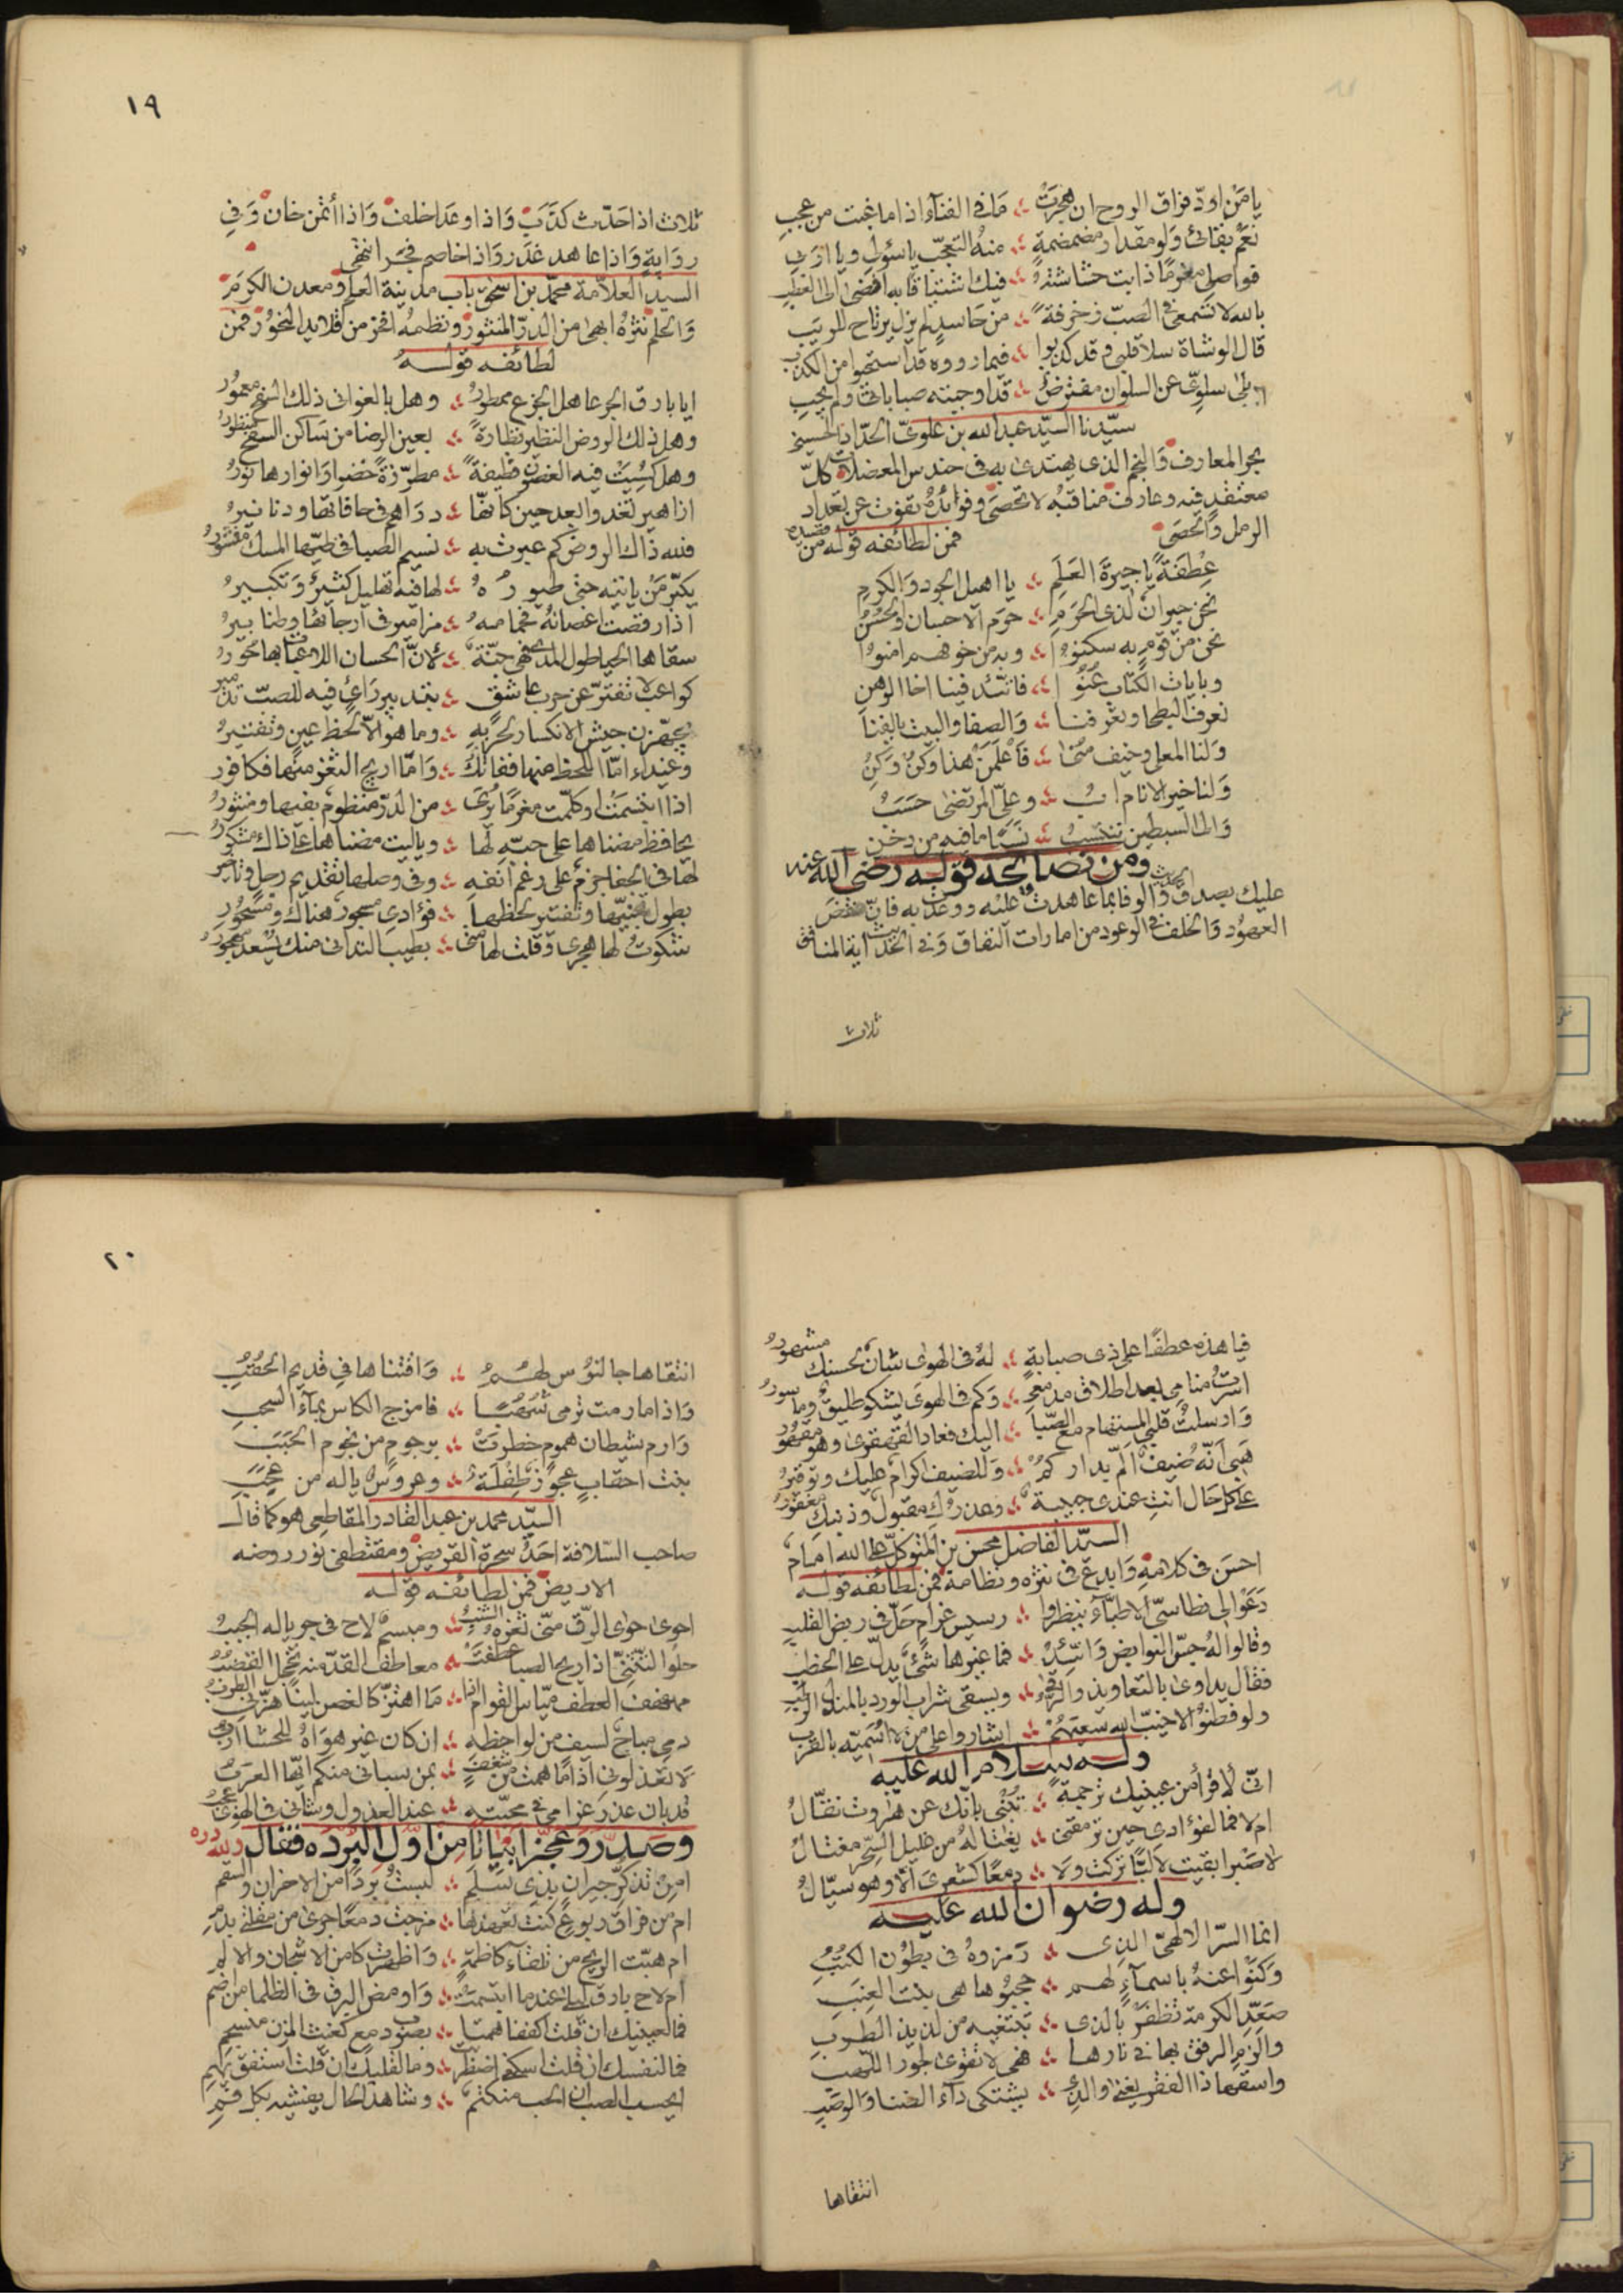 يا من اودّ فراق الروح ان هجرت ؞ ما في الفناء اذا ما غبت من عجب
نعم بقائي ولو مقدار مضمضمة ؞ منه التعجّب يا سئولي ويا اربي
فواصلي مغرمًا ذابت حشاشته ؞ فيك اشتياقا به افضى الى العطب
بالله لا تسمعي في الصبّ زخرفة ؞ من حاسد لم يزل يرتاح للريب
قال الوشاة سلا قلبي وقد كذبوا ؞ فيما رووه قد استحيوا من الكذب
بلى سلوّي عن السلوان مفترض ؞ قد اوجبته صباباتي ولم يجب
سيّدنا السيّد عبد الله بن علويّ الحدّاد الحسيني
بحر المعارف والنجم الذي يهتدى به في حندس المعضلات كلّ
معتقد فيه وعارف مناقبه لا تحصى وفوائده تفوت عن تعداد
الرمل والحصى فمن لطائفه قوله من قصيدة
عطفة يا جيرة العلم ؞ يا اهيل الجود والكرم
نحن جيران لذي الحرم ؞ حرم الاحسان والحسن
نحن من قوم به سكنوا ؞ وبه من خوفهم امنوا
وبايات الكتاب عنوا ؞ فاتّئد فينا اخا الوهن
نعرف البطحا وتعرفنا ؞ والصفا والبيت يالفنا
ولنا المعلى وخيف منى ؞ فاعلمن هذا وكن وكن
ولنا خير الانام اب ؞ وعليّ المرتضى حسب
والى السبطين ننتسب ؞ نسبًا ما فيه من دخن
ومن نصائحه قوله رضي الله عنه
عليك بصدق الحديث والوفا بما عاهدت عليه ووعدت به فانّ نقض
العهود والخلف في الوعود من امارات النفاق وفي الحديث اية المنافق
ثلاث
١٩
ثلاث اذا حدّث كذب واذا وعد اخلف واذا أئتمن خان وفي
رواية واذا عاهد غدر واذا خاصم فجر انتهى
السيد العلّامة محمّد بن اسحق باب مدينة العلم ومعدن الكرم
والحلم نثره ابهى من الدرّ المنثور ونظمه افخر من قلايد النحور فمن
لطائفه قوله
ايا بارق الجرعا هل الجزع ممطور ؞ وهل بالغواني ذلك السفح معمور
وهل ذلك الروض النظير نظارة ؞ بعين الرضا من ساكن السفح منظور
وهل كسيت فيه الغصون قطيفة ؞ مطرّزة خضرا وانوارها نور
ازاهير تغدو العد حين كانّها ؞ دراهم في حافاتها ودنانير
فلله ذاك الروض كم عبرت به ؞ نسيم الصبا في طيّها المسك منشور
يكبّر من ياتيه حتى طيوره ؞ لها فيه تهليل كثير وتكبير
اذا رقصت اغصانه فحمامه ؞ مزامير في ارجائها وطنابير
سقاها الحيا طول المدى فهي جنّة ؞ لانّ الحسان اللاعبات بها حور
كواعب لا تفترّ عن حرب عاشق ؞ بتدبير رأي فيه للصبّ تدمير
يجهّزن جيش الانكسار لحربه ؞ وما هو الّا لحظ عين وتفتير
وغيداء امّا اللحظ منها ففاتك ؞ وامّا اريج الثغر منها فكافور
اذا ابتسمت او كلّمت مغرمًا ترى ؞ من الدرّ منظوم بفيها ومنثور
يحافظ مضناها على حبّه لها ؞ وياليت مضناها على ذاك مشكور
لها في الجفا جزم على رغم انفه ؞ وفي وصلها تقديم رجل وتاخير
بطول تجنّيها وتفتير لحظها ؞ فؤادي مسجور هناك ومسحور
شكوت لها هجري وقلت لها متى ؞ بطيب التداني منك يسعد مهجور
فيا هذه عطفًا على ذي صبابة ؞ له في الهوى شان بحسنك مشهور
اسرت منامي بعد اطلاق مدمعي ؞ وكم في الهوى يشكو طليق وماسور
وارسلت قلبي المستهام مع الصّبا ؞ اليك فعاد القهقرى وهو مقهور
هبي انّه ضيف المّ بداركم ؞ وللضيف اكرام عليك وتوقير
على كل حال انت عندي حبيبة ؞ وعذرك مقبول وذنبك مغفور
السيّد الفاضل محسن بن المتوكل على الله امام
احسن في كلامه وابدع في نثره ونظامه فمن لطائفه قوله
دعوا لي نطاسيّ الاطبّاء ينظروا ؞ رسيس غرام حلّ في ربض القلب
وقالوا له جسّ النوابض واتّئد ؞ فما غيرها شئ يدلّ على الخطب
فقال يداوى بالتعاويذ والرقى ؞ ويسقى شراب الورد بالمندل الرطب
ولو فطنوا لا خيّب الله سعيهم ؞ اشاروا على من لا اسمّيه بالقرب
وله سلام الله عليه
انّي لاقرأ من عينيك ترجمة ؞ تنبي بانّك عن هاروت نقّال
ام لا فما لفؤادي حين ترمقني ؞ يغتاله من ظليل السّحر مغتال
لا صبرا بقيت لا لبّا تركت ولا ؞ دمعًا كشعري الّا وهو سيّال
وله رضوان الله عليه
انما السرّ الالهيّ الذي ؞ رمزوه في بطون الكتب
وكنوا عنه باسماء لهم ؞ حجبوها هي بنت العنب
صعّد الكرمة تظفر بالذي ؞ تبتغيه من لذيذ الطرب
والزم الرفق بها في نارها ؞ فهي لا تقوى لجور اللهب
واسقها ذا الفقر يغنى والذي ؞ يشتكي داء الضنا والوصب
انتقاها
٢٠
انتقاها جالنوس لهم ؞ واقتناها في قديم الحقب
واذا ما رمت ترمي شهبًا ؞ فامزج الكاس بماء السحب
وارم شيطان هموم خطرت ؞ برجوم من نجوم الحبب
بنت احقاب عجوز طفلة ؞ وعروس ياله من عجب
السيّد محمد بن عبد القادر المقاطعي هو كما قال
صاحب السّلافة احد سحرة القريض ومقتطفي نور روضه
الاريض فمن لطائفه قوله
احوى حوى الرّق منّي ثغره الشنب ؞ ومبسم لاح في جرياله الحبب
حلو التثنّي اذا ريح الصبا عطفت ؞ معاطف القدّ منه تخجل القضب
مهفهف العطف ميّاس القوام اذا ؞ ما اهتزّ كالغصن لينًا هزّني الطرب
دمي مباح لسيف من لواحظه ؞ ان كان غير هواه للحشا ارب
لا تعذلوني اذا ما همت من شغف ؞ بمن سباني منكم ايّها العرب
قد بان عذر غرامي في محبّته ؞ عند العذول وشاني في الهوى عجب
وصدّر وعجّز ابياتا من اوّل البرده فقال ولله درّه
امن تذكّر جيران بذي سلم ؞ لبست بردًا من الاحزان والسقم
ام من فراق ربوع كنت تعهدها ؞ مزجت دمعًا جرى من مقلة بدم
ام هبّت الريح من تلقاء كاظمة ؞ واظهرت كامن الاشجان والالم
ام لاح بارق ليلى عندما ابتسمت ؞ واومض البرق في الظلما من اضم
فما لعينيك ان قلت اكففا همتا ؞ بصوب دمع كغيث المزن منسجم
فما لنفسك ان قلت اسكني اضطربت ؞ وما لقلبك ان قلت استفق يهم
ايحسب الصب ان الحب منكتم ؞ وشاهد الحال يفشيه بكل فم